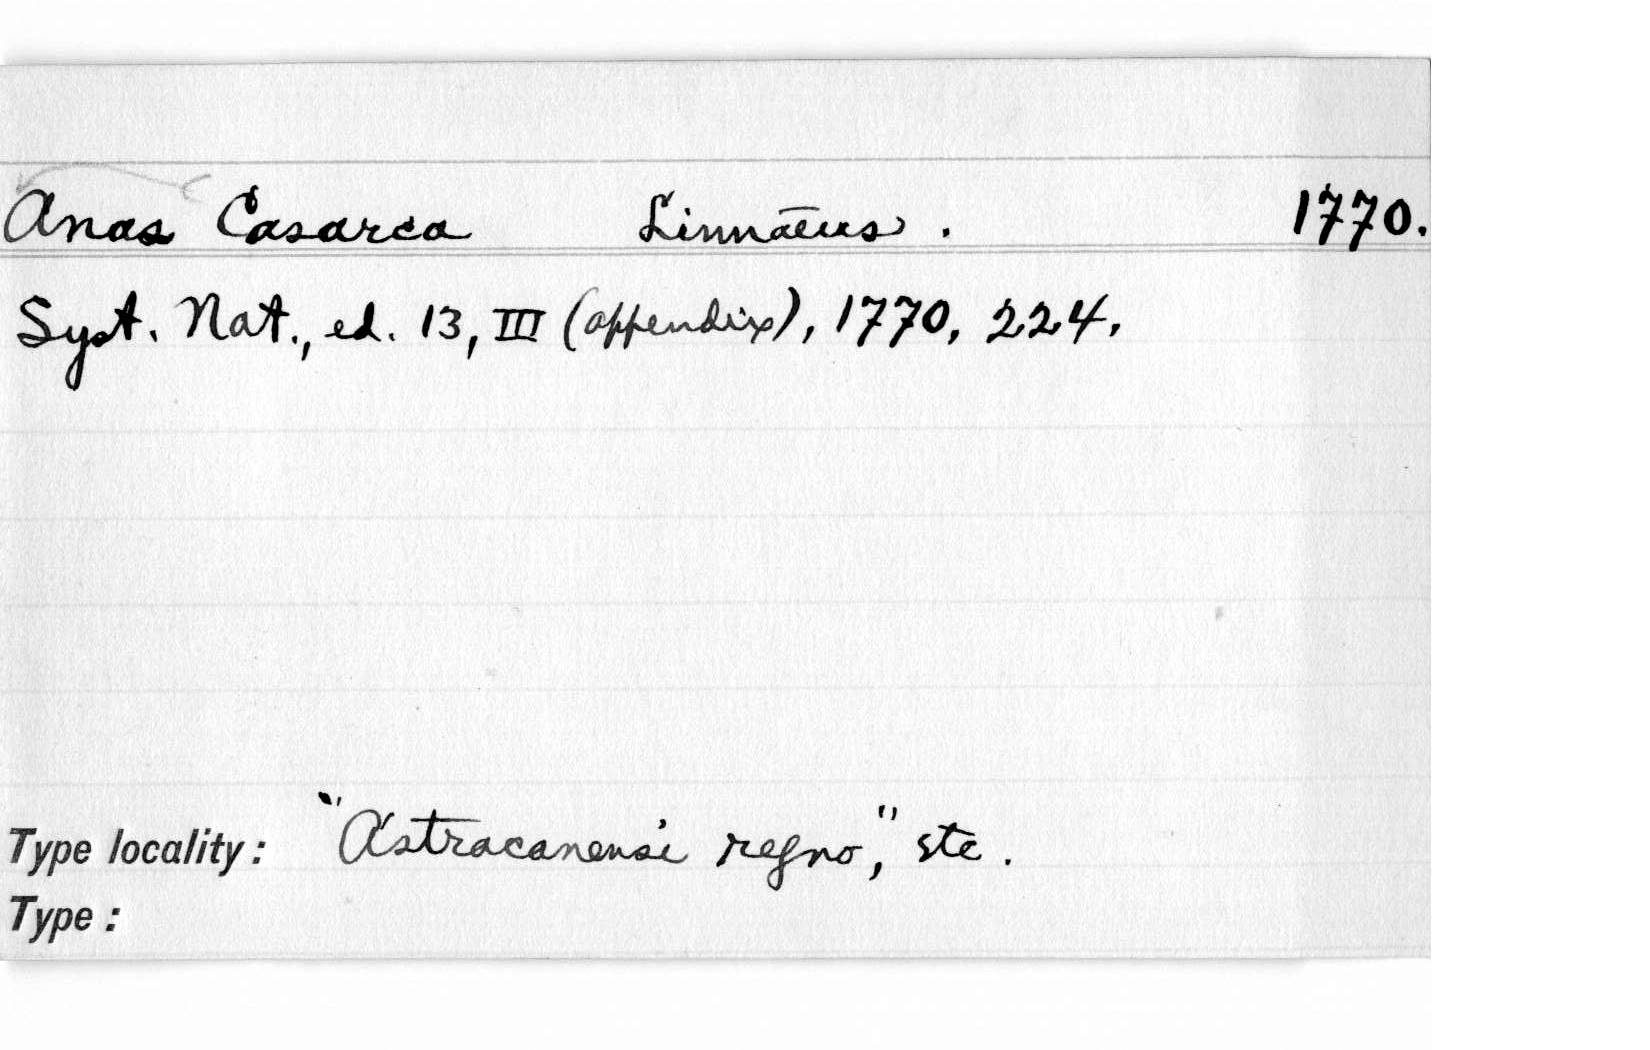 Anas Casarca Linnaeus. 1770.
Syst. Nat., ed. 13, III (appendix), 1770, 224.
Type locality: "Astracanensi regno," etc.
Type: